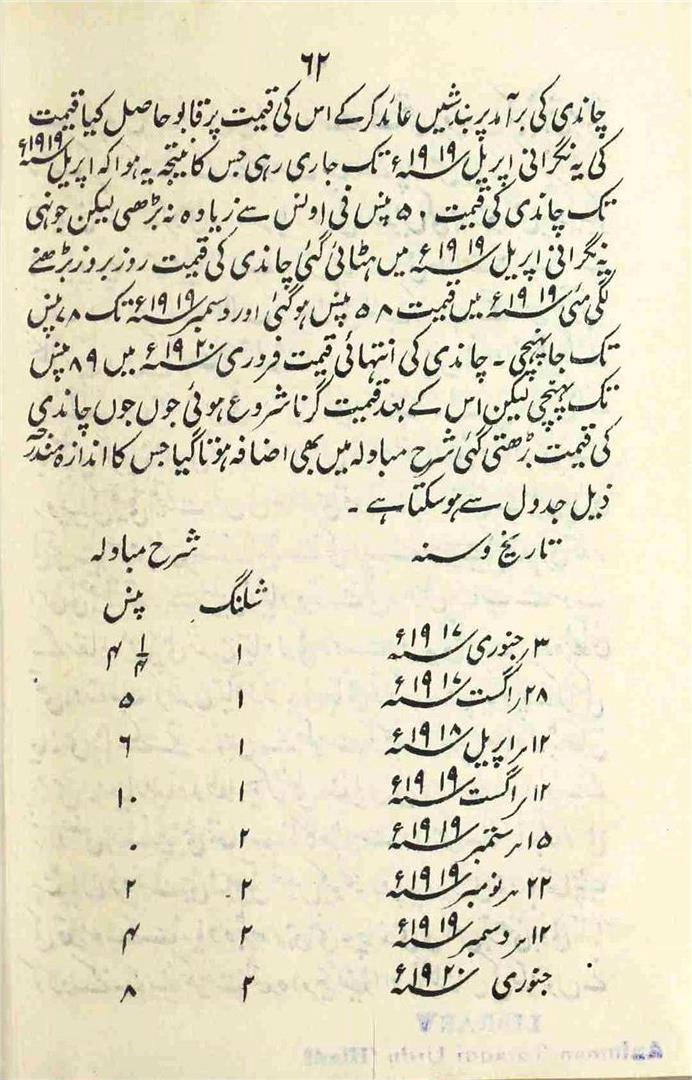 ۶۲
چاندی کی برآمد پر بندشیں عائد کرکے اس کی قیمت پر قابو حاصل کیا قیمت
کی یہ نگرانی اپریل سنہ ۱۹۱۹ء تک جاری رہی جس کا نتیجہ یہ ہوا کہ اپریل سنہ ۱۹۱۹ء
تک چاندی کی قیمت ۵۰ پنس فی اونس سے زیادہ نہ بڑھی لیکن جونہی
یہ نگرانی اپریل سنہ ۱۹۱۹ء میں ہٹائی گئی چاندی کی قیمت روز بروز بڑھنے
لگی مئی سنہ ۱۹۱۹ء میں قیمت ۵۸ پنس ہوگئی اور دسمبر سنہ ۱۹۱۹ء تک ۷۸ پنس
تک جا پہنچی ۔ چاندی کی انتہائی قیمت فروری سنہ ۱۹۲۰ء میں ۸۹ پنس
تک پہنچی لیکن اس کے بعد قیمت گرنا شروع ہوئی جوں جوں چاندی
کی قیمت بڑھتی گئی شرح مبادلہ میں بھی اضافہ ہوتا گیا جس کا اندازہ مندرجہ
ذیل جدول سے ہوسکتا ہے ۔
تاریخ و سنہ شرح مبادلہ
شلنگ پنس
۳ر جنوری سنہ ۱۹۱۷ء ۱ ۴ ۱/۴
۲۸ر اگست سنہ ۱۹۱۷ء ۱ ۵
۱۲ر اپریل سنہ ۱۹۱۸ء ۱ ۶
۱۲ر اگست سنہ ۱۹۱۹ء ۱ ۱۰
۱۵ر ستمبر سنہ ۱۹۱۹ء ۲ ۰
۲۲ر نومبر سنہ ۱۹۱۹ء ۲ ۲
۱۲ر دسمبر سنہ ۱۹۱۹ء ۲ ۴
جنوری سنہ ۱۹۲۰ء ۲ ۸
LIBRARY
Anjuman Taraqqi Urdu (Hind)